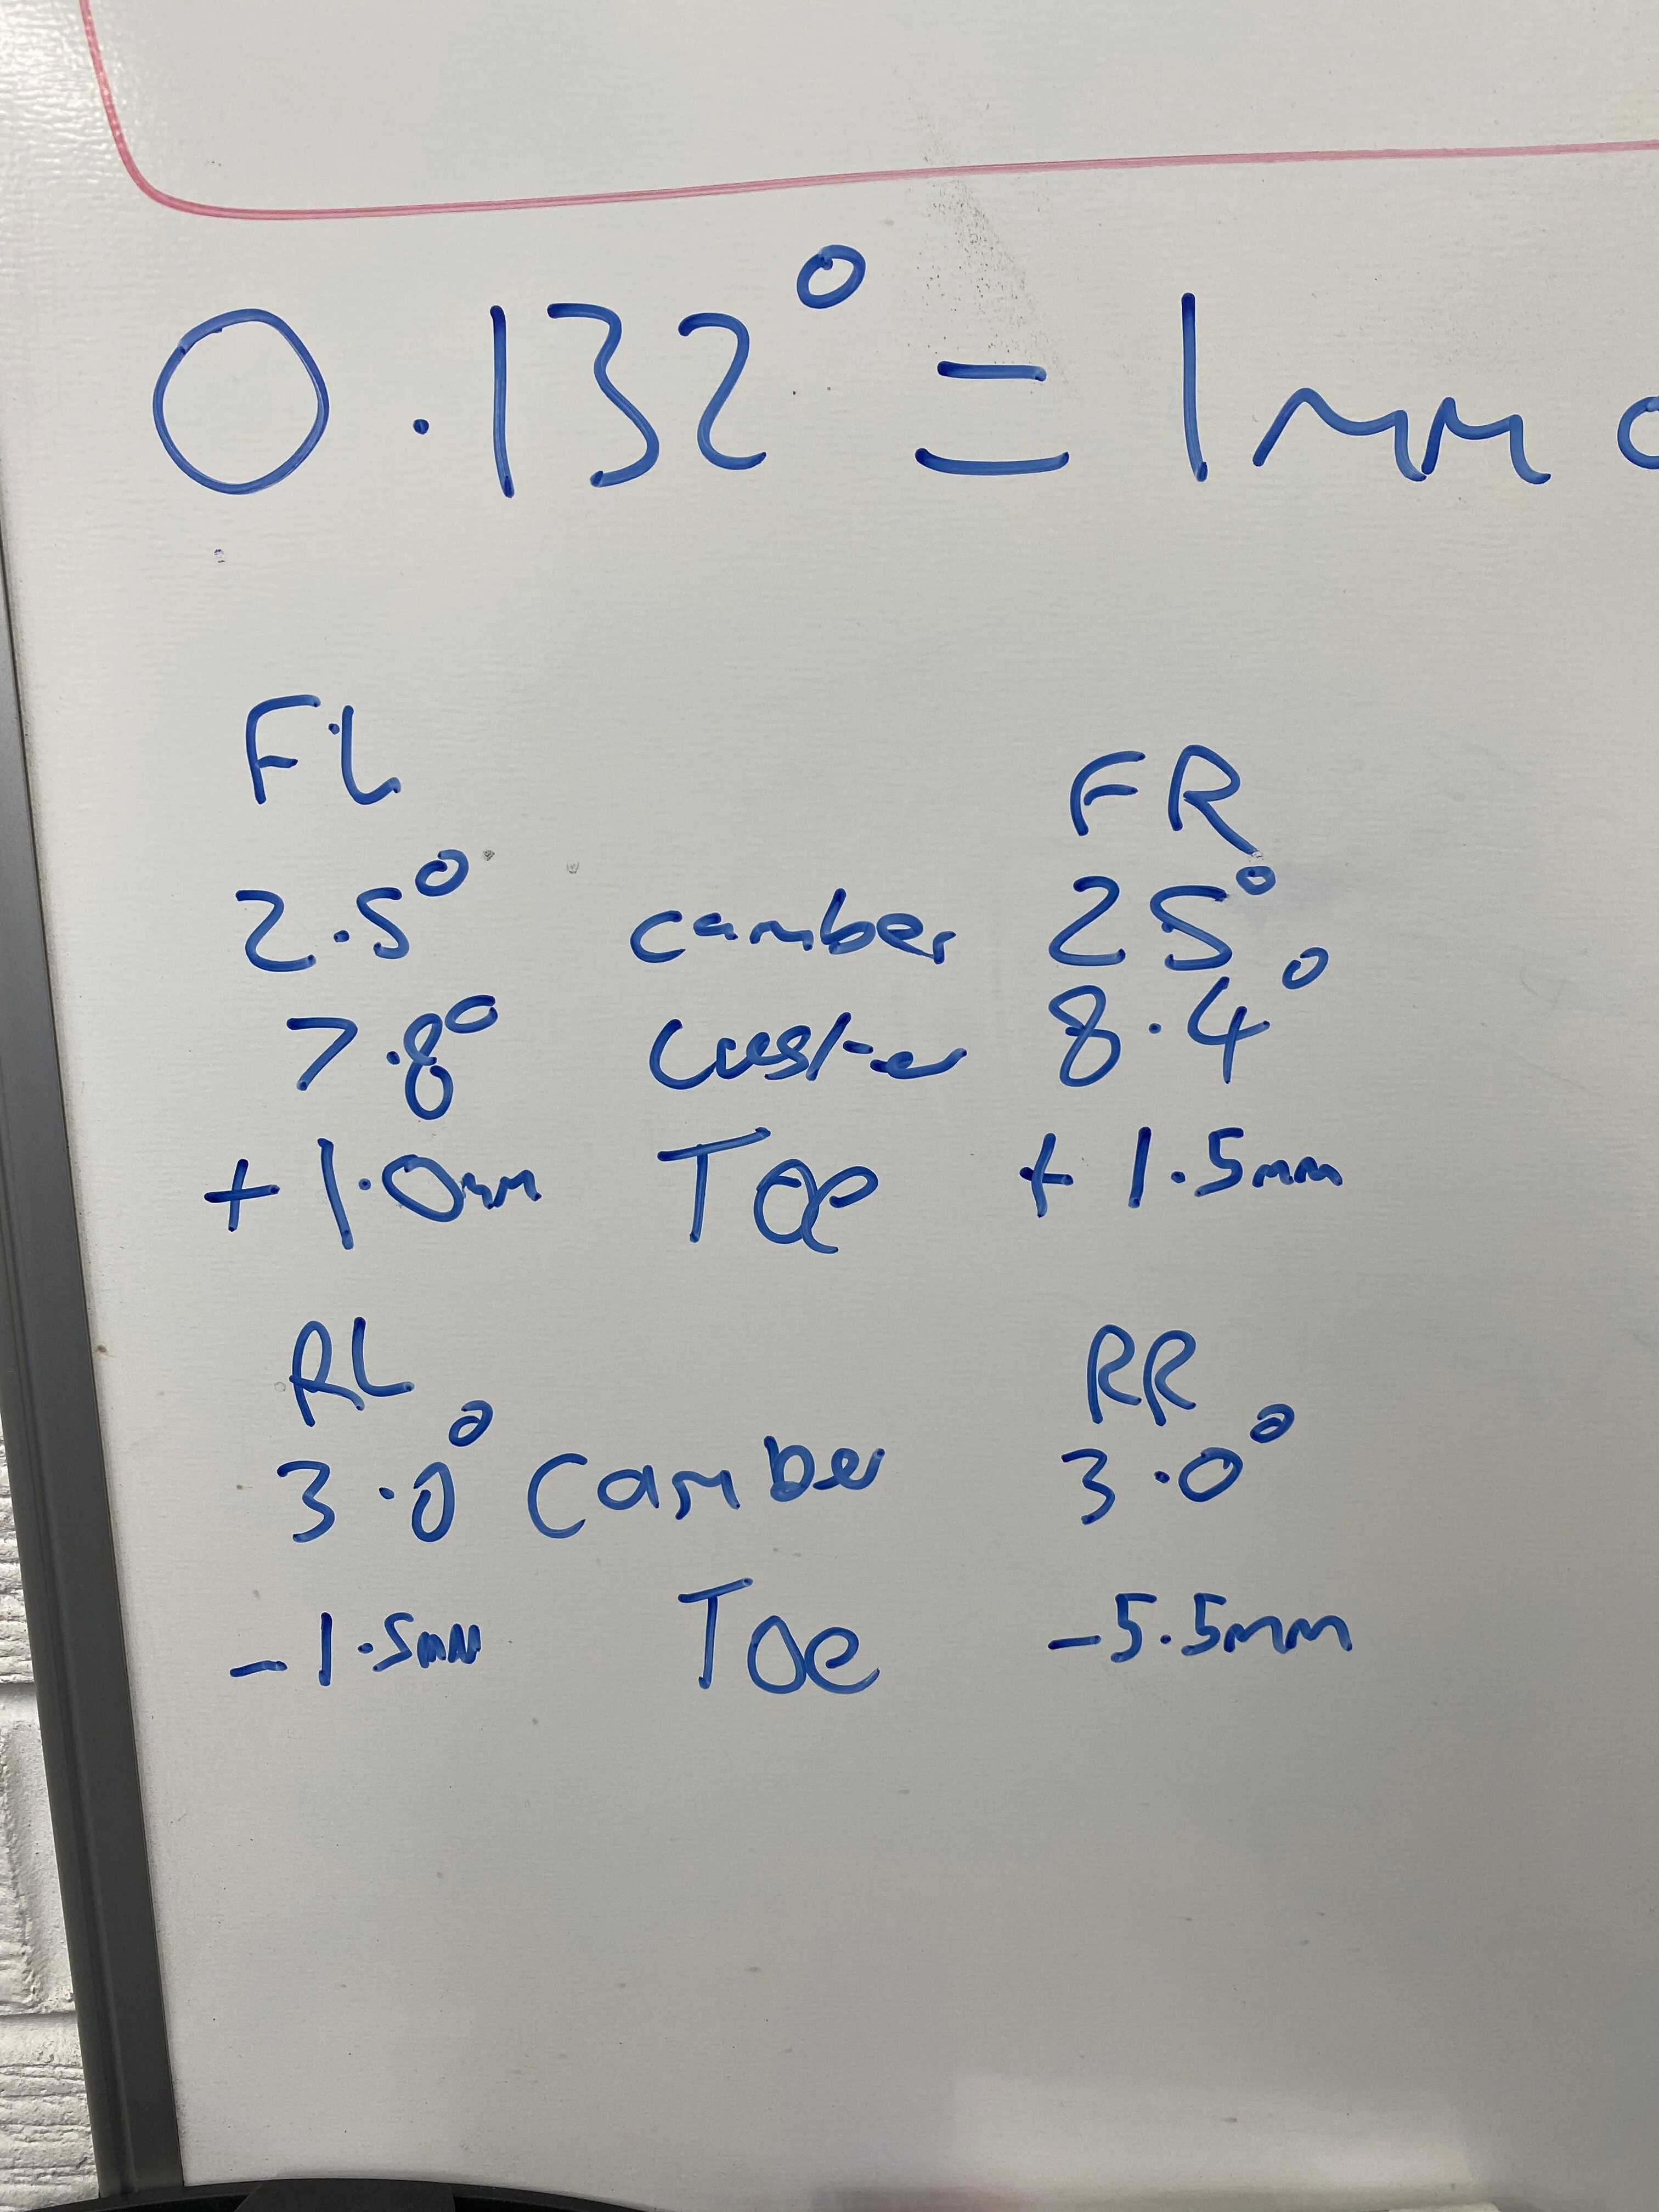 0.132° = 1mm
FL FR
2.5° camber 25°
7.8° Caster 8.4°
+1.0mm Toe +1.5mm
RL RR
3.0° Camber 3.0°
-1.5mm Toe -5.5mm